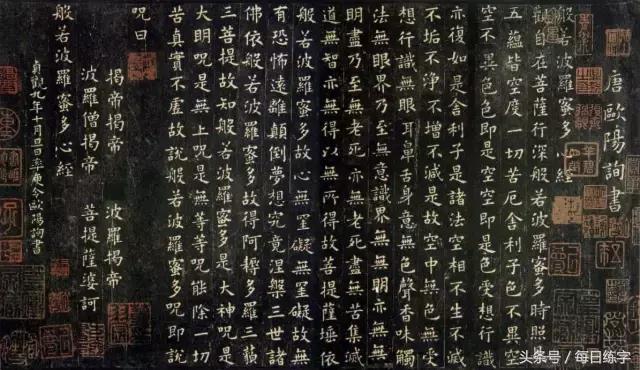 唐歐陽詢書
般若波羅蜜多心經
觀自在菩薩行深般若波羅蜜多時照
五蘊皆空度一切苦厄舍利子色不異空
空不異色色即是空空即是色受想行識
亦復如是舍利子是諸法空相不生不滅
不垢不淨不增不減是故空中無色無受
想行識無眼耳鼻舌身意無色聲香味觸
法無眼界乃至無意識界無無明亦無無
明盡乃至無老死亦無老死盡無苦集滅
道無智亦無得以無所得故菩提薩埵依
般若波羅蜜多故心無罣礙無罣礙故無
有恐怖遠離顛倒夢想究竟涅槃三世諸
佛依般若波羅蜜多故得阿耨多羅三藐
三菩提故知般若波羅蜜多是大神咒是
大明咒是無上咒是無等等咒能除一切
苦真實不虛故說般若波羅蜜多咒即說
咒曰
揭帝揭帝 波羅揭帝
波羅僧揭帝 菩提薩婆訶
般若波羅蜜多心經
貞觀九年十月旦日率更令歐陽詢書
头条号／每日练字